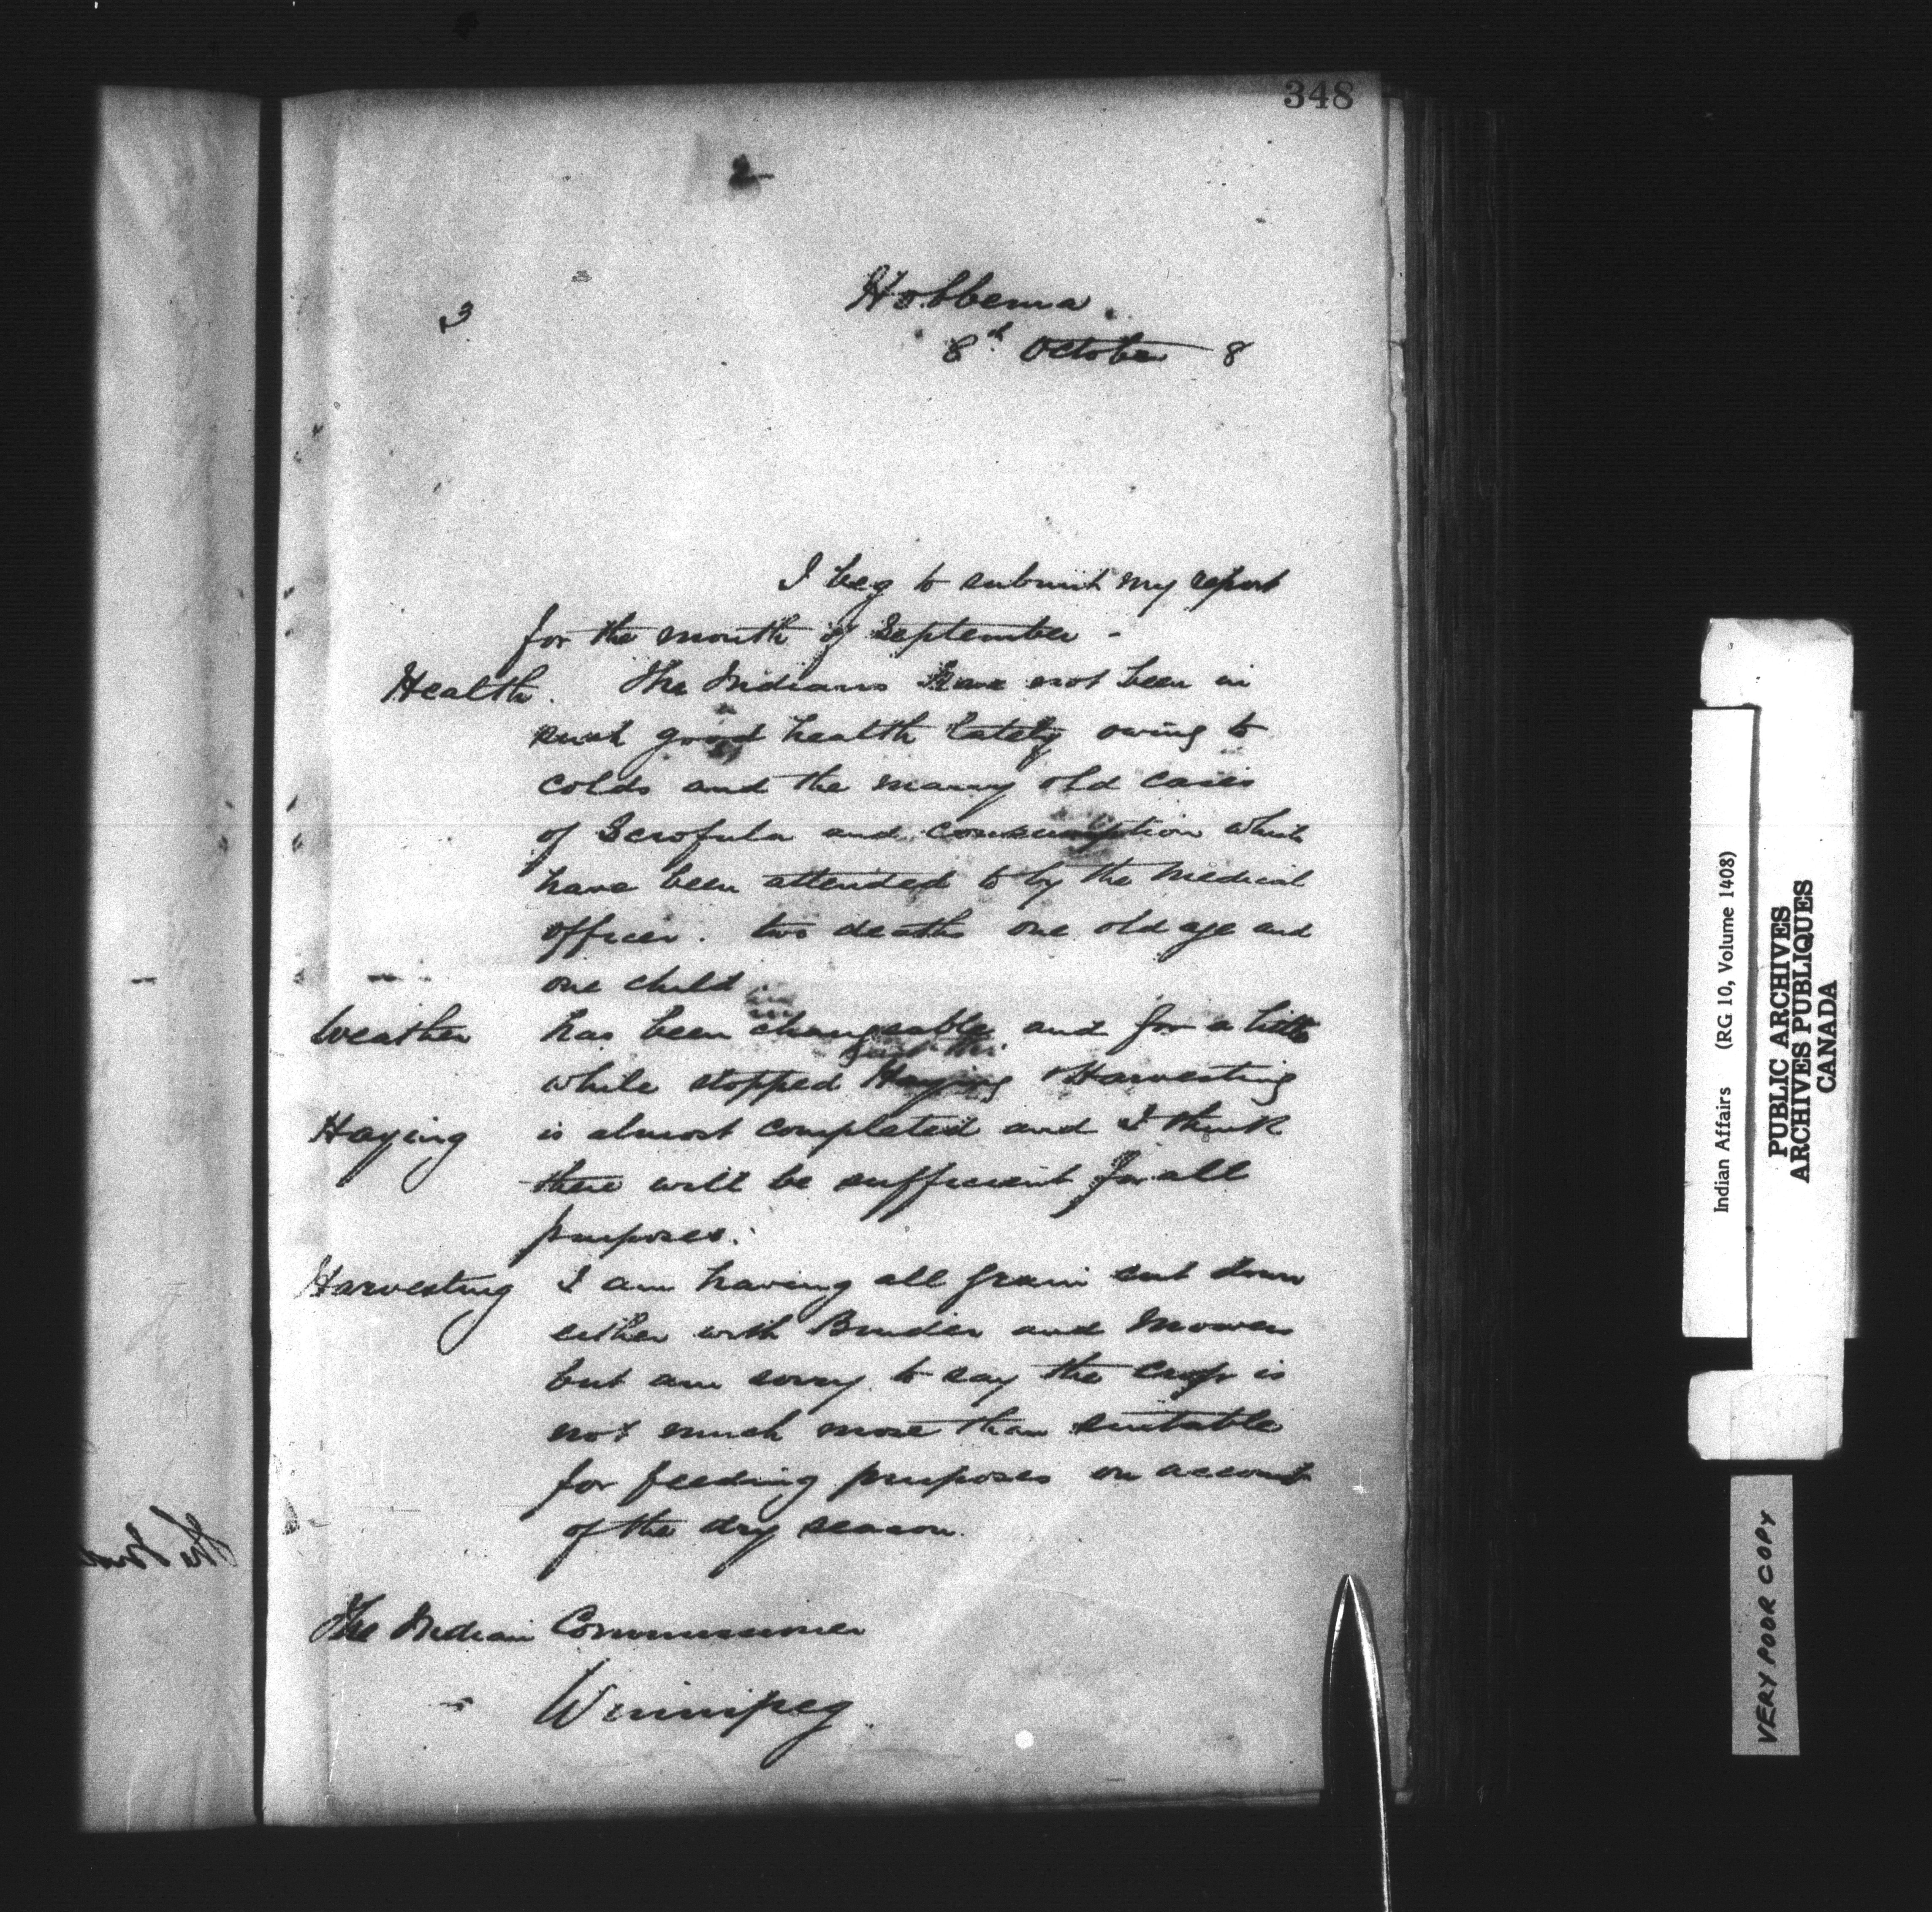 348
2
Hobbema.
3
8th October 8
I beg to submit my report
for the month of September -
Health. The Indians have not been in
such good health lately owing to
colds and the many old cases
of Scrofula and consumption which
have been attended to by the Medical
officer. two deaths one old age and
one child
Weather has been changeable and for a little
while stopped Haying & Harvesting
Haying is almost completed and I think
there will be sufficient for all
purposes.
Harvesting I am having all grain cut down
either with Binder and Mowers
but am sorry to say the crop is
not much more than suitable
for feeding purposes on account
of the dry season.
The Indian Commissioner
Winnipeg
Indian Affairs (RG 10, Volume 1408)
PUBLIC ARCHIVES
ARCHIVES PUBLIQUES
CANADA
VERY POOR COPY